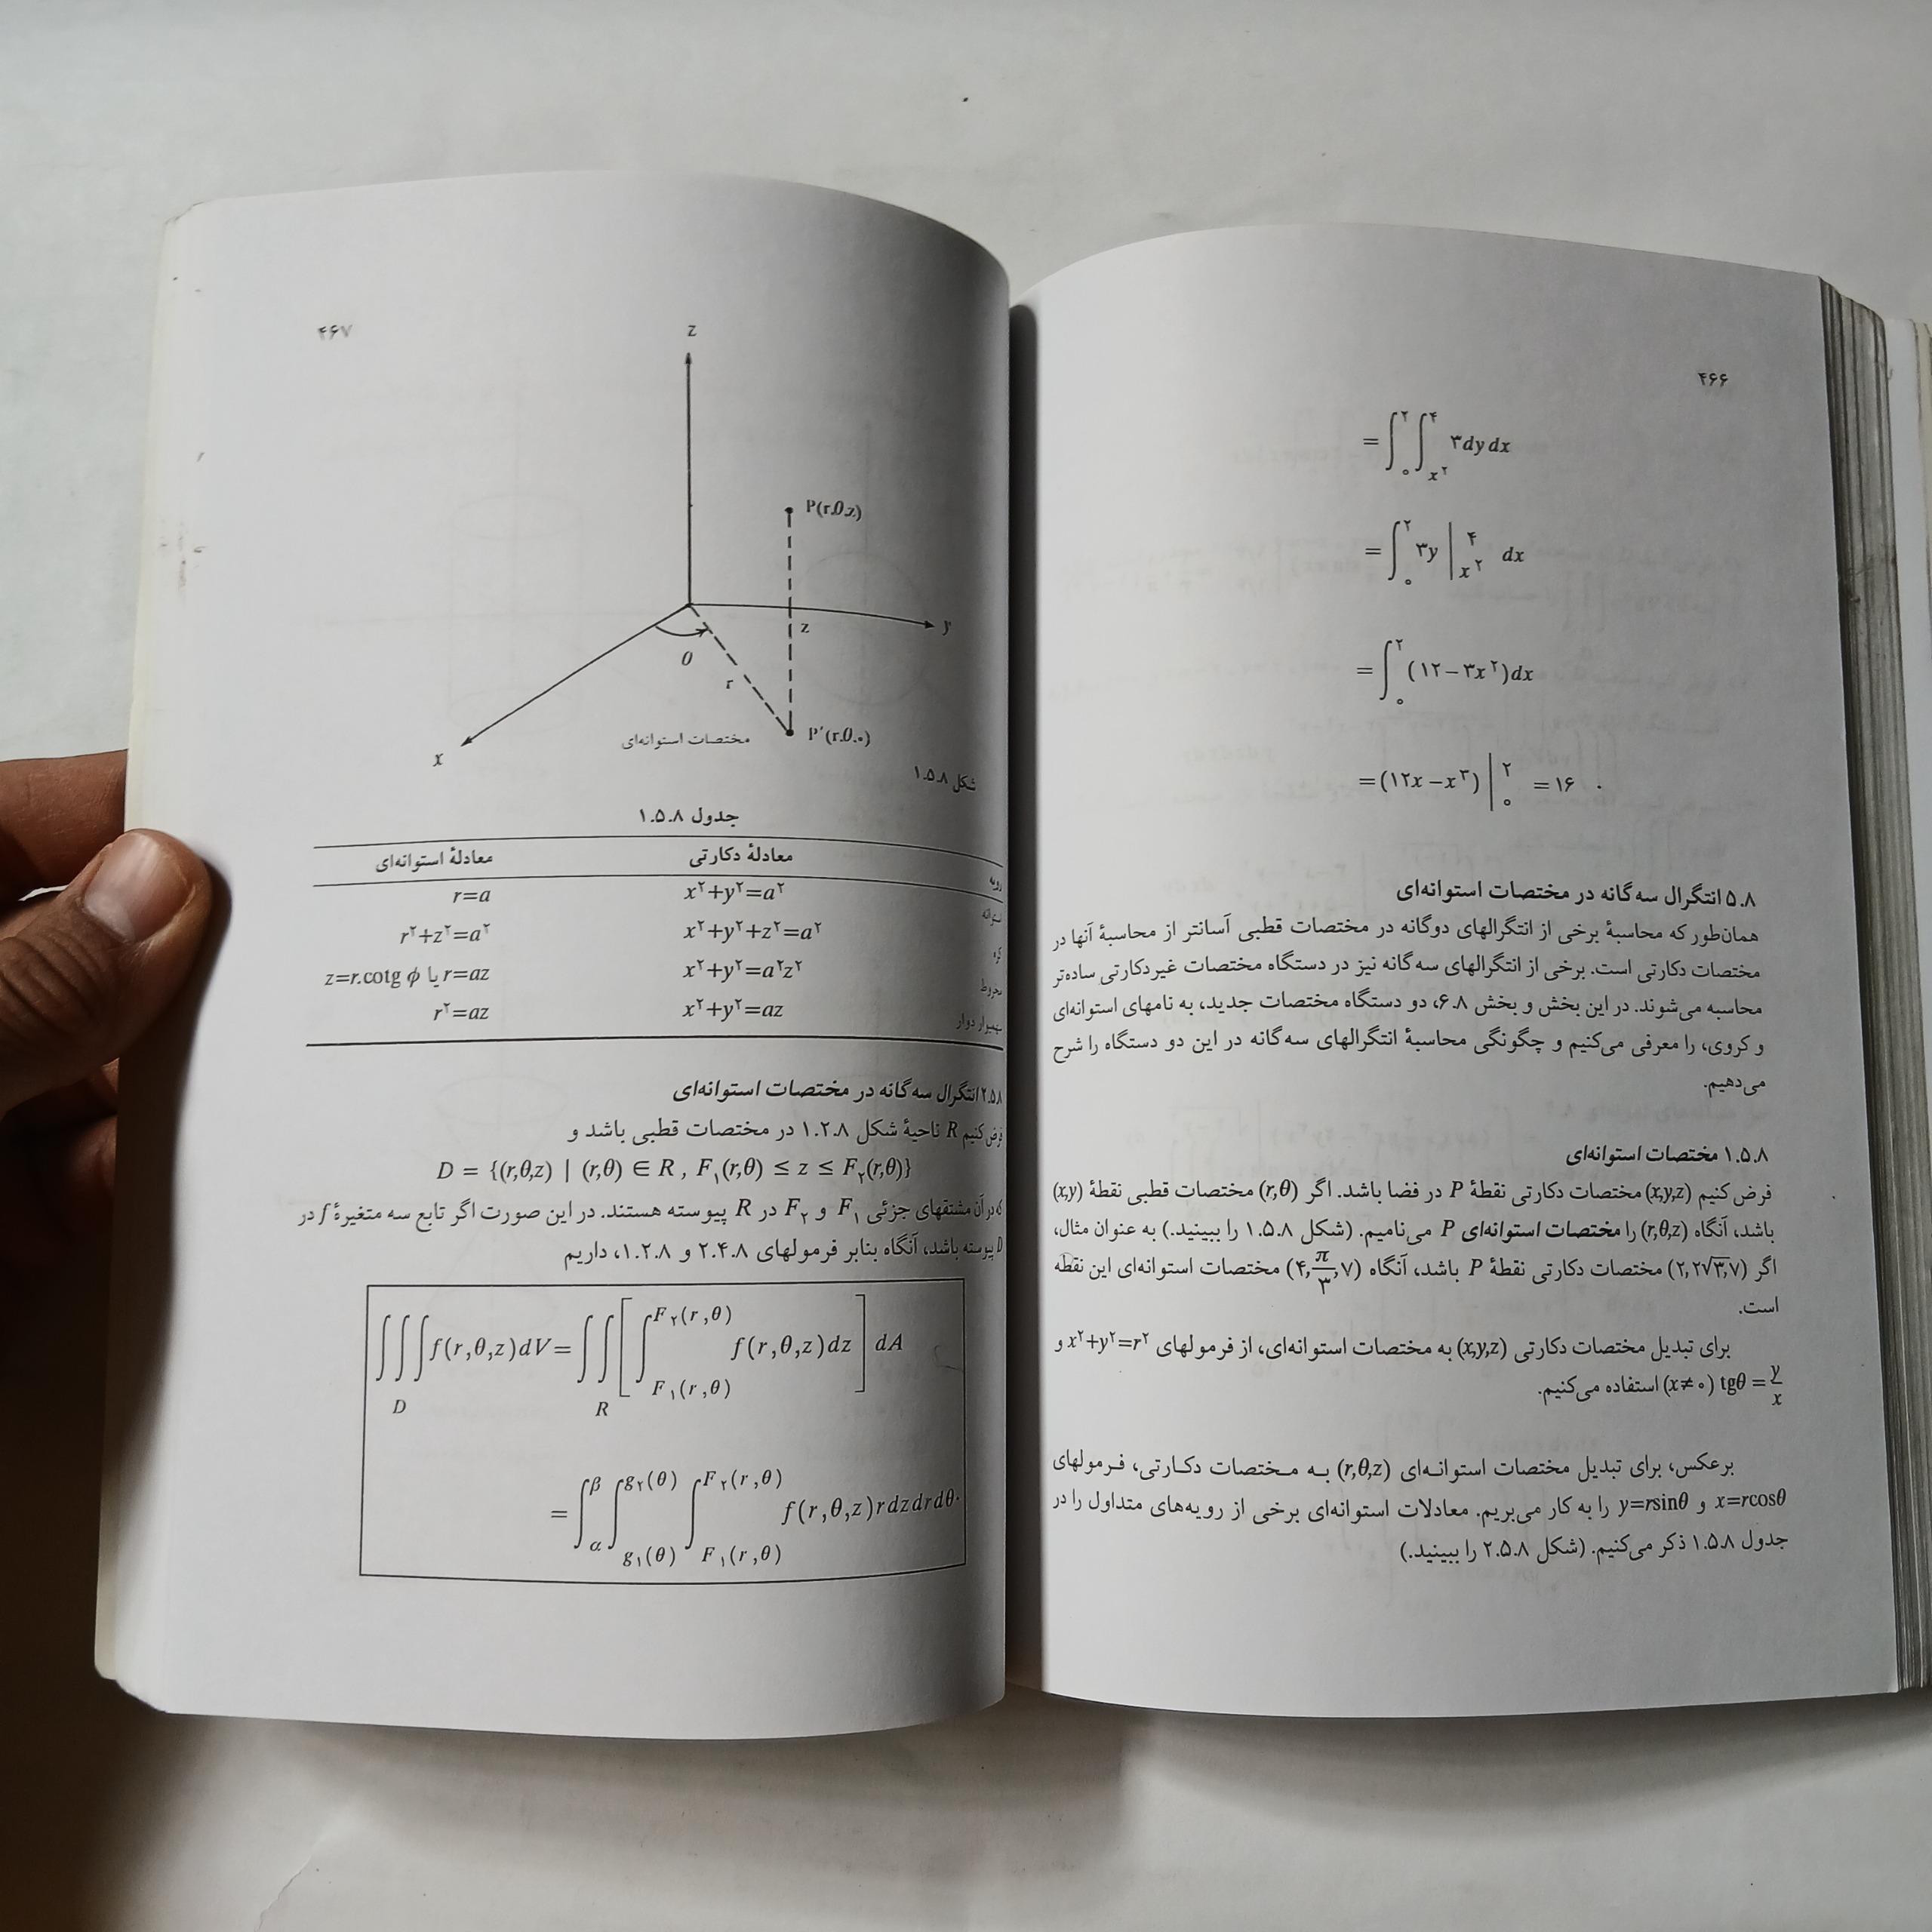 ۴۶۶
= ∫₀^۲ ∫_{x^۲}^۴ ۳dy dx
= ∫₀^۲ ۳y |_{x^۲}^۴ dx
= ∫₀^۲ (۱۲−۳x^۲)dx
= (۱۲x−x^۳) |₀^۲ = ۱۶ .
۵.۸ انتگرال سه‌گانه در مختصات استوانه‌ای
همان‌طور که محاسبهٔ برخی از انتگرالهای دوگانه در مختصات قطبی آسانتر از محاسبهٔ آنها در
مختصات دکارتی است. برخی از انتگرالهای سه‌گانه نیز در دستگاه مختصات غیردکارتی ساده‌تر
محاسبه می‌شوند. در این بخش و بخش ۶.۸، دو دستگاه مختصات جدید، به نامهای استوانه‌ای
و کروی، را معرفی می‌کنیم و چگونگی محاسبهٔ انتگرالهای سه‌گانه در این دو دستگاه را شرح
می‌دهیم.
۱.۵.۸ مختصات استوانه‌ای
فرض کنیم (x,y,z) مختصات دکارتی نقطهٔ P در فضا باشد. اگر (r,θ) مختصات قطبی نقطهٔ (x,y)
باشد، آنگاه (r,θ,z) را مختصات استوانه‌ای P می‌نامیم. (شکل ۱.۵.۸ را ببینید.) به عنوان مثال،
اگر (۲,۲√۳,۷) مختصات دکارتی نقطهٔ P باشد، آنگاه (۴,π/۳,۷) مختصات استوانه‌ای این نقطه
است.
برای تبدیل مختصات دکارتی (x,y,z) به مختصات استوانه‌ای، از فرمولهای x^۲+y^۲=r^۲ و
tgθ = y/x (x≠۰) استفاده می‌کنیم.
برعکس، برای تبدیل مختصات استوانه‌ای (r,θ,z) به مختصات دکارتی، فرمولهای
x=rcosθ و y=rsinθ را به کار می‌بریم. معادلات استوانه‌ای برخی از رویه‌های متداول را در
جدول ۱.۵.۸ ذکر می‌کنیم. (شکل ۲.۵.۸ را ببینید.)
۴۶۷
z
P(r,θ,z)
z
y
θ
r
P′(r,θ,۰)
x
مختصات استوانه‌ای
شکل ۱.۵.۸
جدول ۱.۵.۸
رویه معادلهٔ دکارتی معادلهٔ استوانه‌ای
استوانه x^۲+y^۲=a^۲ r=a
کره x^۲+y^۲+z^۲=a^۲ r^۲+z^۲=a^۲
مخروط x^۲+y^۲=a^۲z^۲ r=az یا z=r.cotg ϕ
سهمیوار دوار x^۲+y^۲=az r^۲=az
۲.۵.۸ انتگرال سه‌گانه در مختصات استوانه‌ای
فرض کنیم R ناحیهٔ شکل ۱.۲.۸ در مختصات قطبی باشد و
D = {(r,θ,z) | (r,θ) ∈ R , F₁(r,θ) ≤ z ≤ F₂(r,θ)}
که در آن مشتقهای جزئی F₁ و F₂ در R پیوسته هستند. در این صورت اگر تابع سه متغیرهٔ f در
D پیوسته باشد، آنگاه بنابر فرمولهای ۲.۴.۸ و ۱.۲.۸، داریم
∫∫∫_D f(r,θ,z)dV = ∫∫_R [∫_{F₁(r,θ)}^{F₂(r,θ)} f(r,θ,z)dz] dA
= ∫_α^β ∫_{g₁(θ)}^{g₂(θ)} ∫_{F₁(r,θ)}^{F₂(r,θ)} f(r,θ,z)r dz dr dθ.